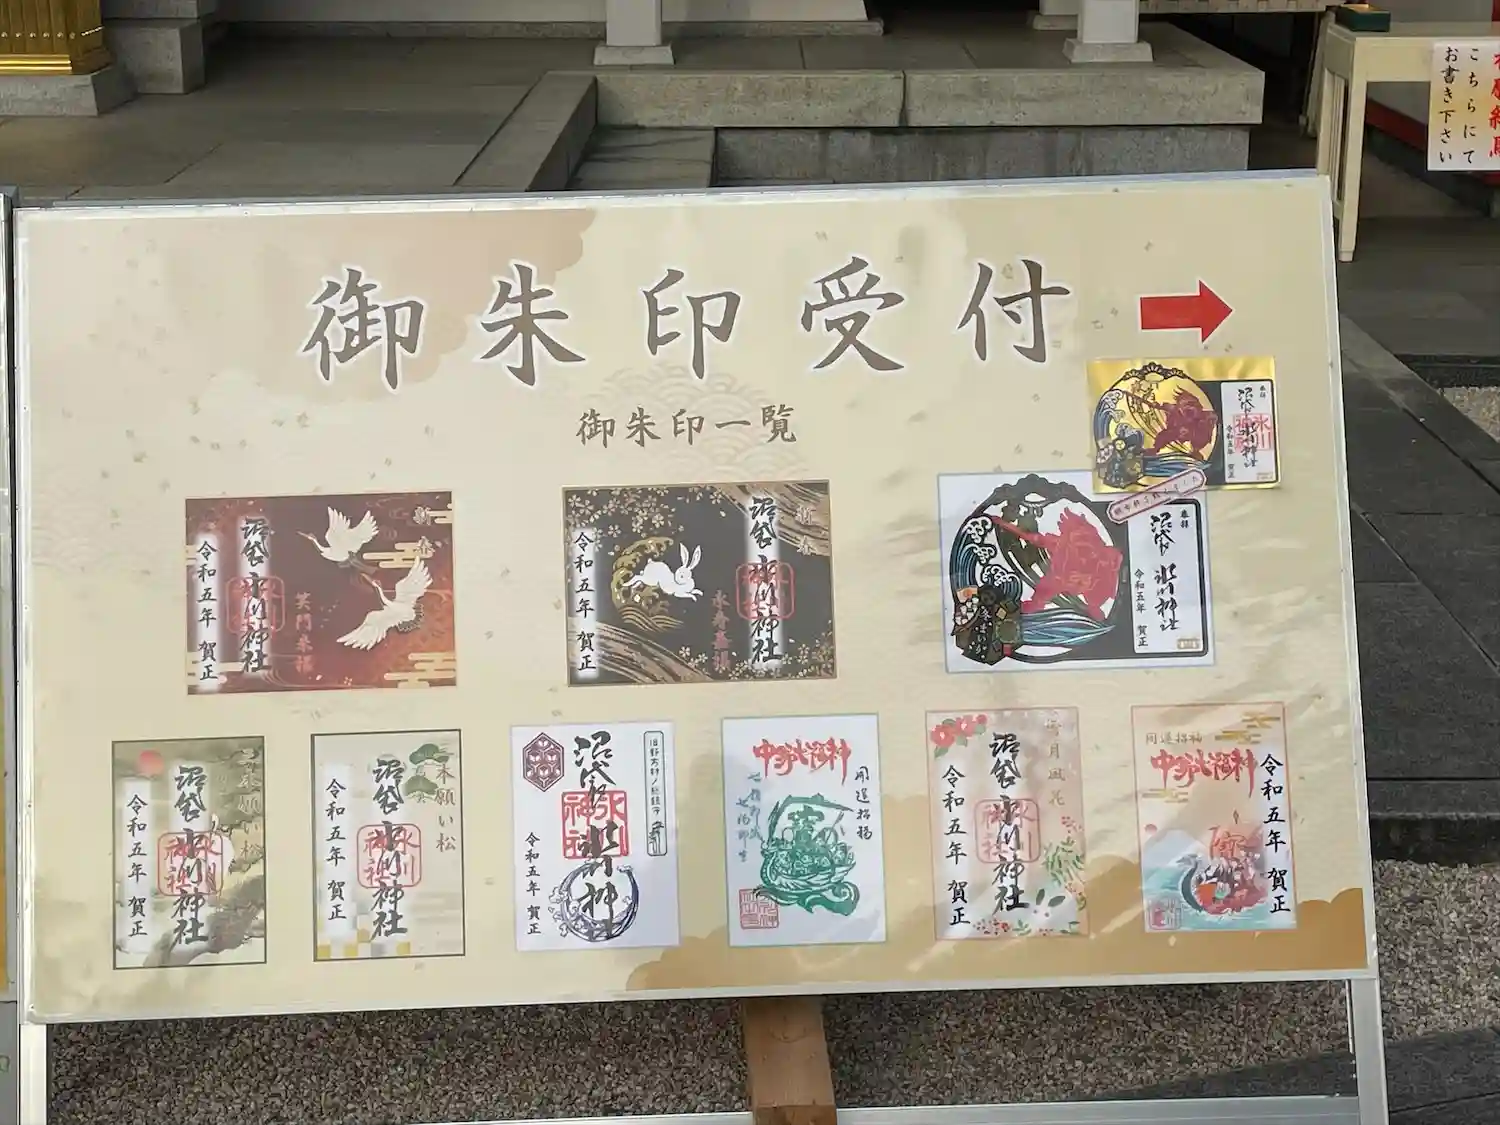 御朱印受付
御朱印一覧
こちらにて
お書き下さい
新春
沼袋氷川神社
笑門来福
令和五年 賀正
新春
沼袋氷川神社
令和五年 賀正
奉拝
沼袋氷川神社
令和五年 賀正
奉拝
沼袋氷川神社
令和五年 賀正
本願い松
沼袋氷川神社
令和五年 賀正
本願い松
沼袋氷川神社
令和五年 賀正
沼袋氷川神社
令和五年 賀正
開運招福
中野七福神
雪月風花
沼袋氷川神社
令和五年 賀正
開運招福
中野七福神
令和五年 賀正